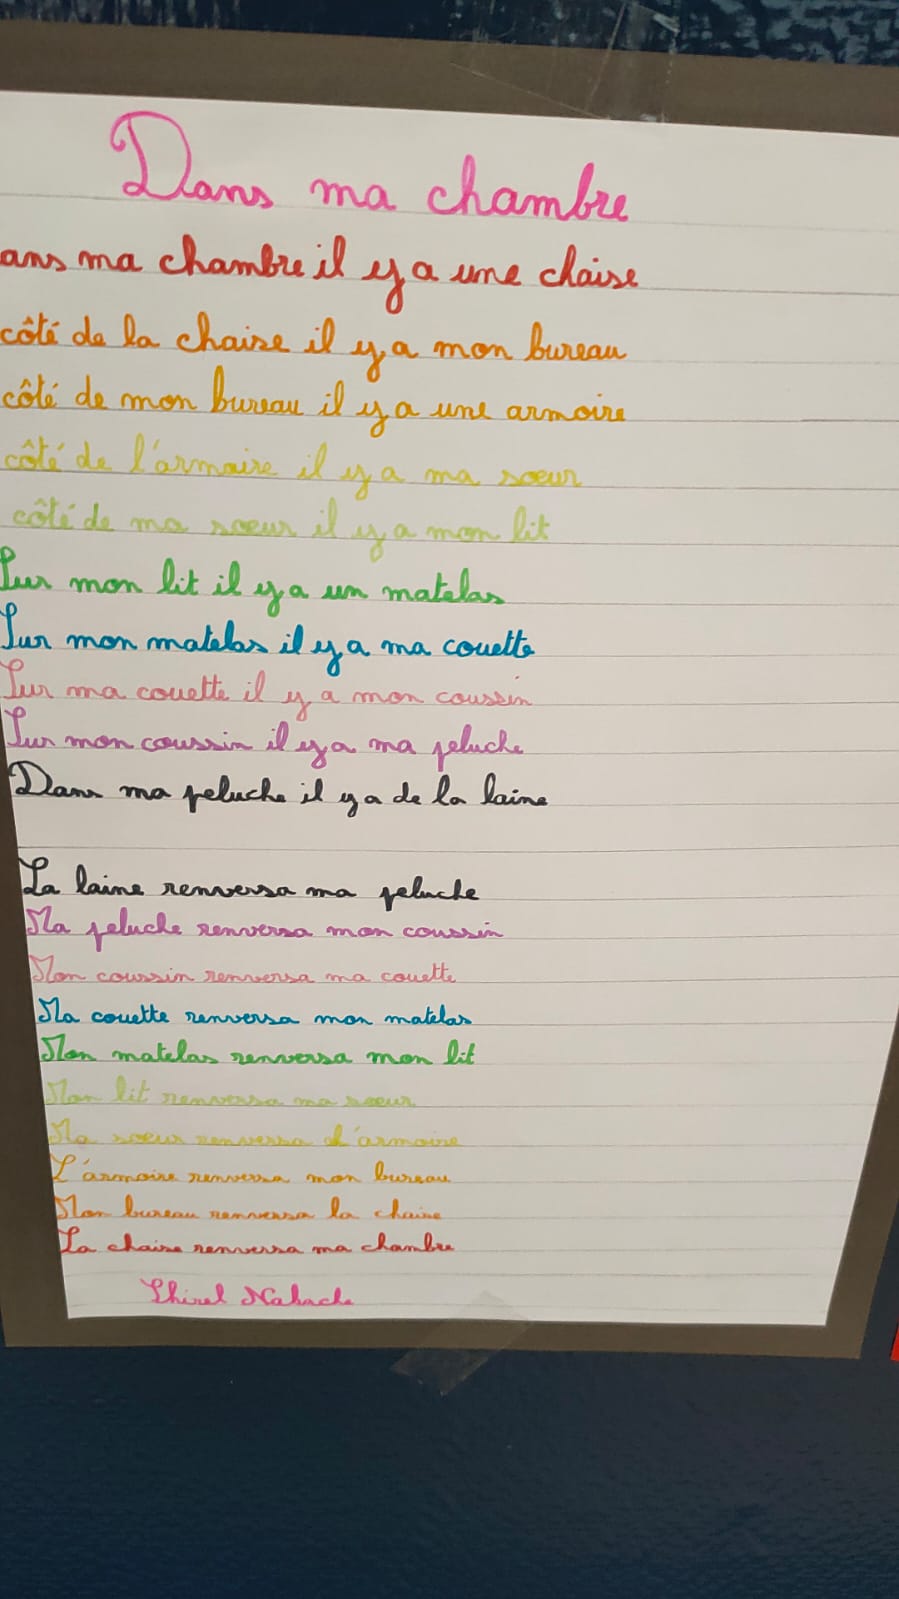 Dans ma chambre
ans ma chambre il y a une chaise
côté de la chaise il y a mon bureau
côté de mon bureau il y a une armoire
côté de l'armoire il y a ma sœur
côté de ma sœur il y a mon lit
Sur mon lit il y a un matelas
Sur mon matelas il y a ma couette
Sur ma couette il y a mon coussin
Sur mon coussin il y a ma peluche
Dans ma peluche il y a de la laine
La laine renversa ma peluche
Ma peluche renversa mon coussin
Mon coussin renversa ma couette
Ma couette renversa mon matelas
Mon matelas renversa mon lit
Mon lit renversa ma sœur
Ma sœur renversa l'armoire
L'armoire renversa mon bureau
Mon bureau renversa la chaise
La chaise renversa ma chambre
Shirel Nahache